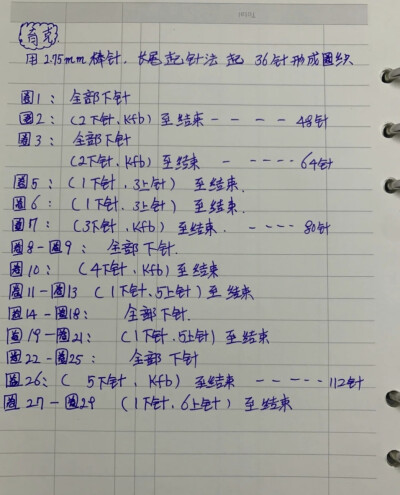 Total
育克
用 2.75mm 棒针, 长尾起针法 起 36针形成圈织
圈1: 全部下针
圈2: (2下针, Kfb) 至结束 - - - - 48针
圈3: 全部下针
(2下针, Kfb) 至结束 - - - - - 64针
圈5: (1下针, 3上针) 至结束.
圈6: (1下针, 3上针) 至结束.
圈7: (3下针, Kfb) 至结束. - - - - - 80针
圈8-圈9: 全部下针.
圈10: (4下针, Kfb) 至结束
圈11-圈13 (1下针, 5上针) 至结束
圈14-圈18: 全部下针.
圈19-圈21: (1下针, 5上针) 至结束
圈22-圈25: 全部下针
圈26: ( 5下针, Kfb) 至结束 - - - - - 112针
圈27-圈29 (1下针, 6上针) 至结束